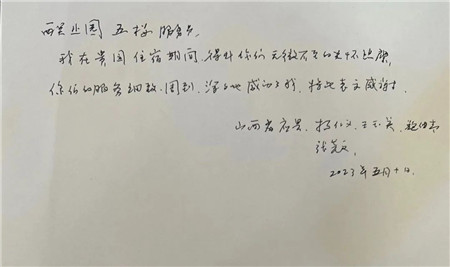 西吴北园 五楼服务员
我在贵园住宿期间 得到你们无微不至的关怀照顾,
你们的服务细致、周到、深深地感动了我, 特此表示感谢!
山西省 杨仁义、王玉英、
张
2023年五月十日